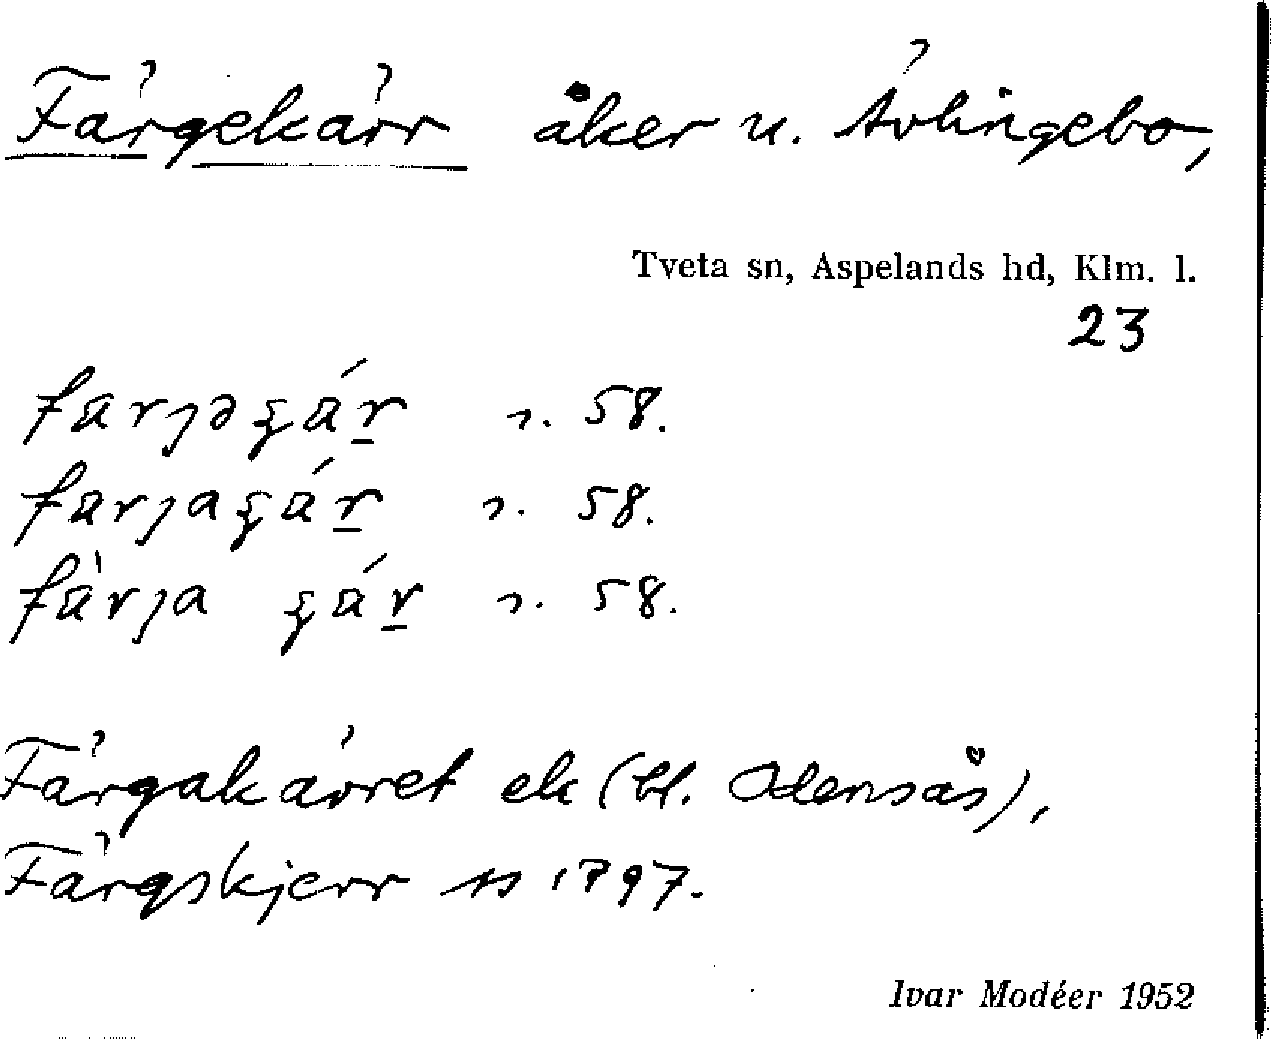 Färgekärr åker u. Ävlingebo,
Tveta sn, Aspelands hd, Klm. l.
23
färjəʂä́r s. 58.
färjaʂä́r s. 58.
fä̀rja ʂä́r s. 58.
Färgakärret ek (bl. Odensås),
Färgskjerr 1797.
Ivar Modéer 1952